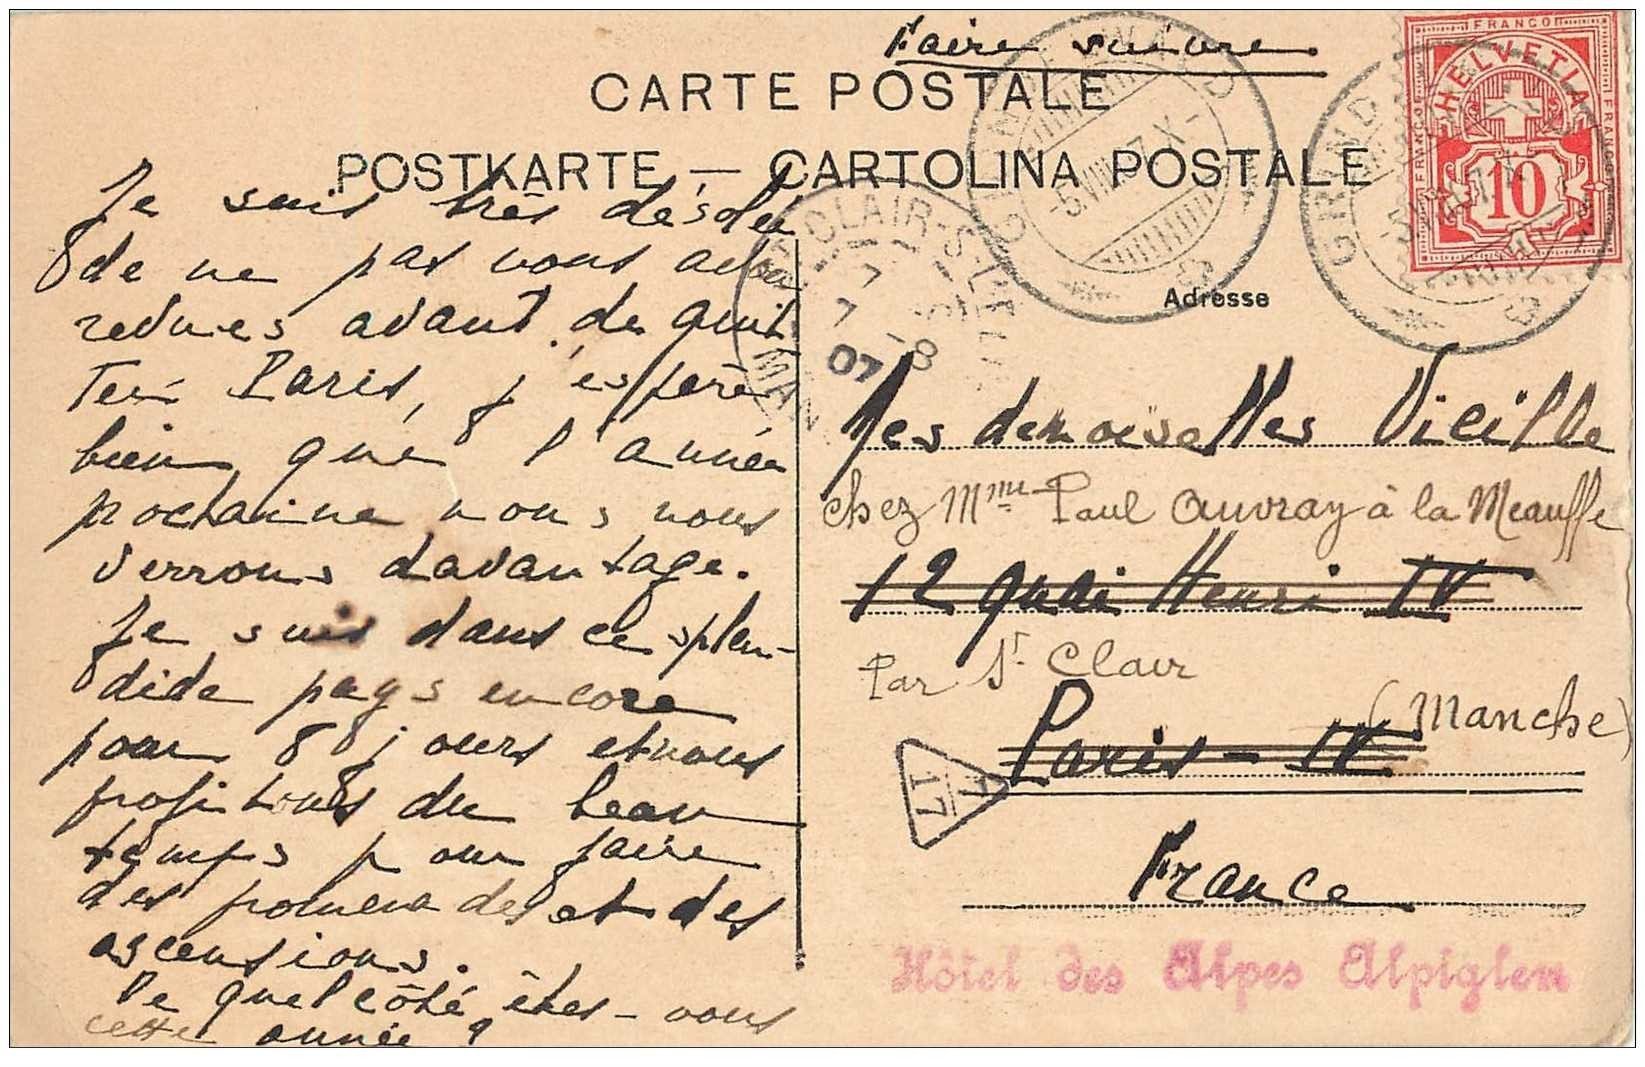 Faire suivre
CARTE POSTALE
POSTKARTE — CARTOLINA POSTALE
Adresse
FRANCO
HELVETIA
FRANCO
FRANCO
10
GRINDELWALD
-5.VIII.07.X-
GRINDELWALD
ST-CLAIR-S-L'ELLE
MANCHE
7
7-8
07
Je suis très désolée
de ne pas vous avoir
revues avant de quit
ter Paris, j'espère
bien que l'année
prochaine nous nous
verrons davantage.
Je suis dans ce splen-
dide pays encore
pour 8 jours et nous
profitons du beau
temps pour faire
des promenades et des
ascensions.
De quel côté êtes-vous
cette année ?
Mesdemoiselles Vieille
chez Mme Paul Auvray à la Meauffe
12 quai Henri IV
Par St Clair
(Manche)
Paris - IV
France
17
Hôtel des Alpes Alpiglen